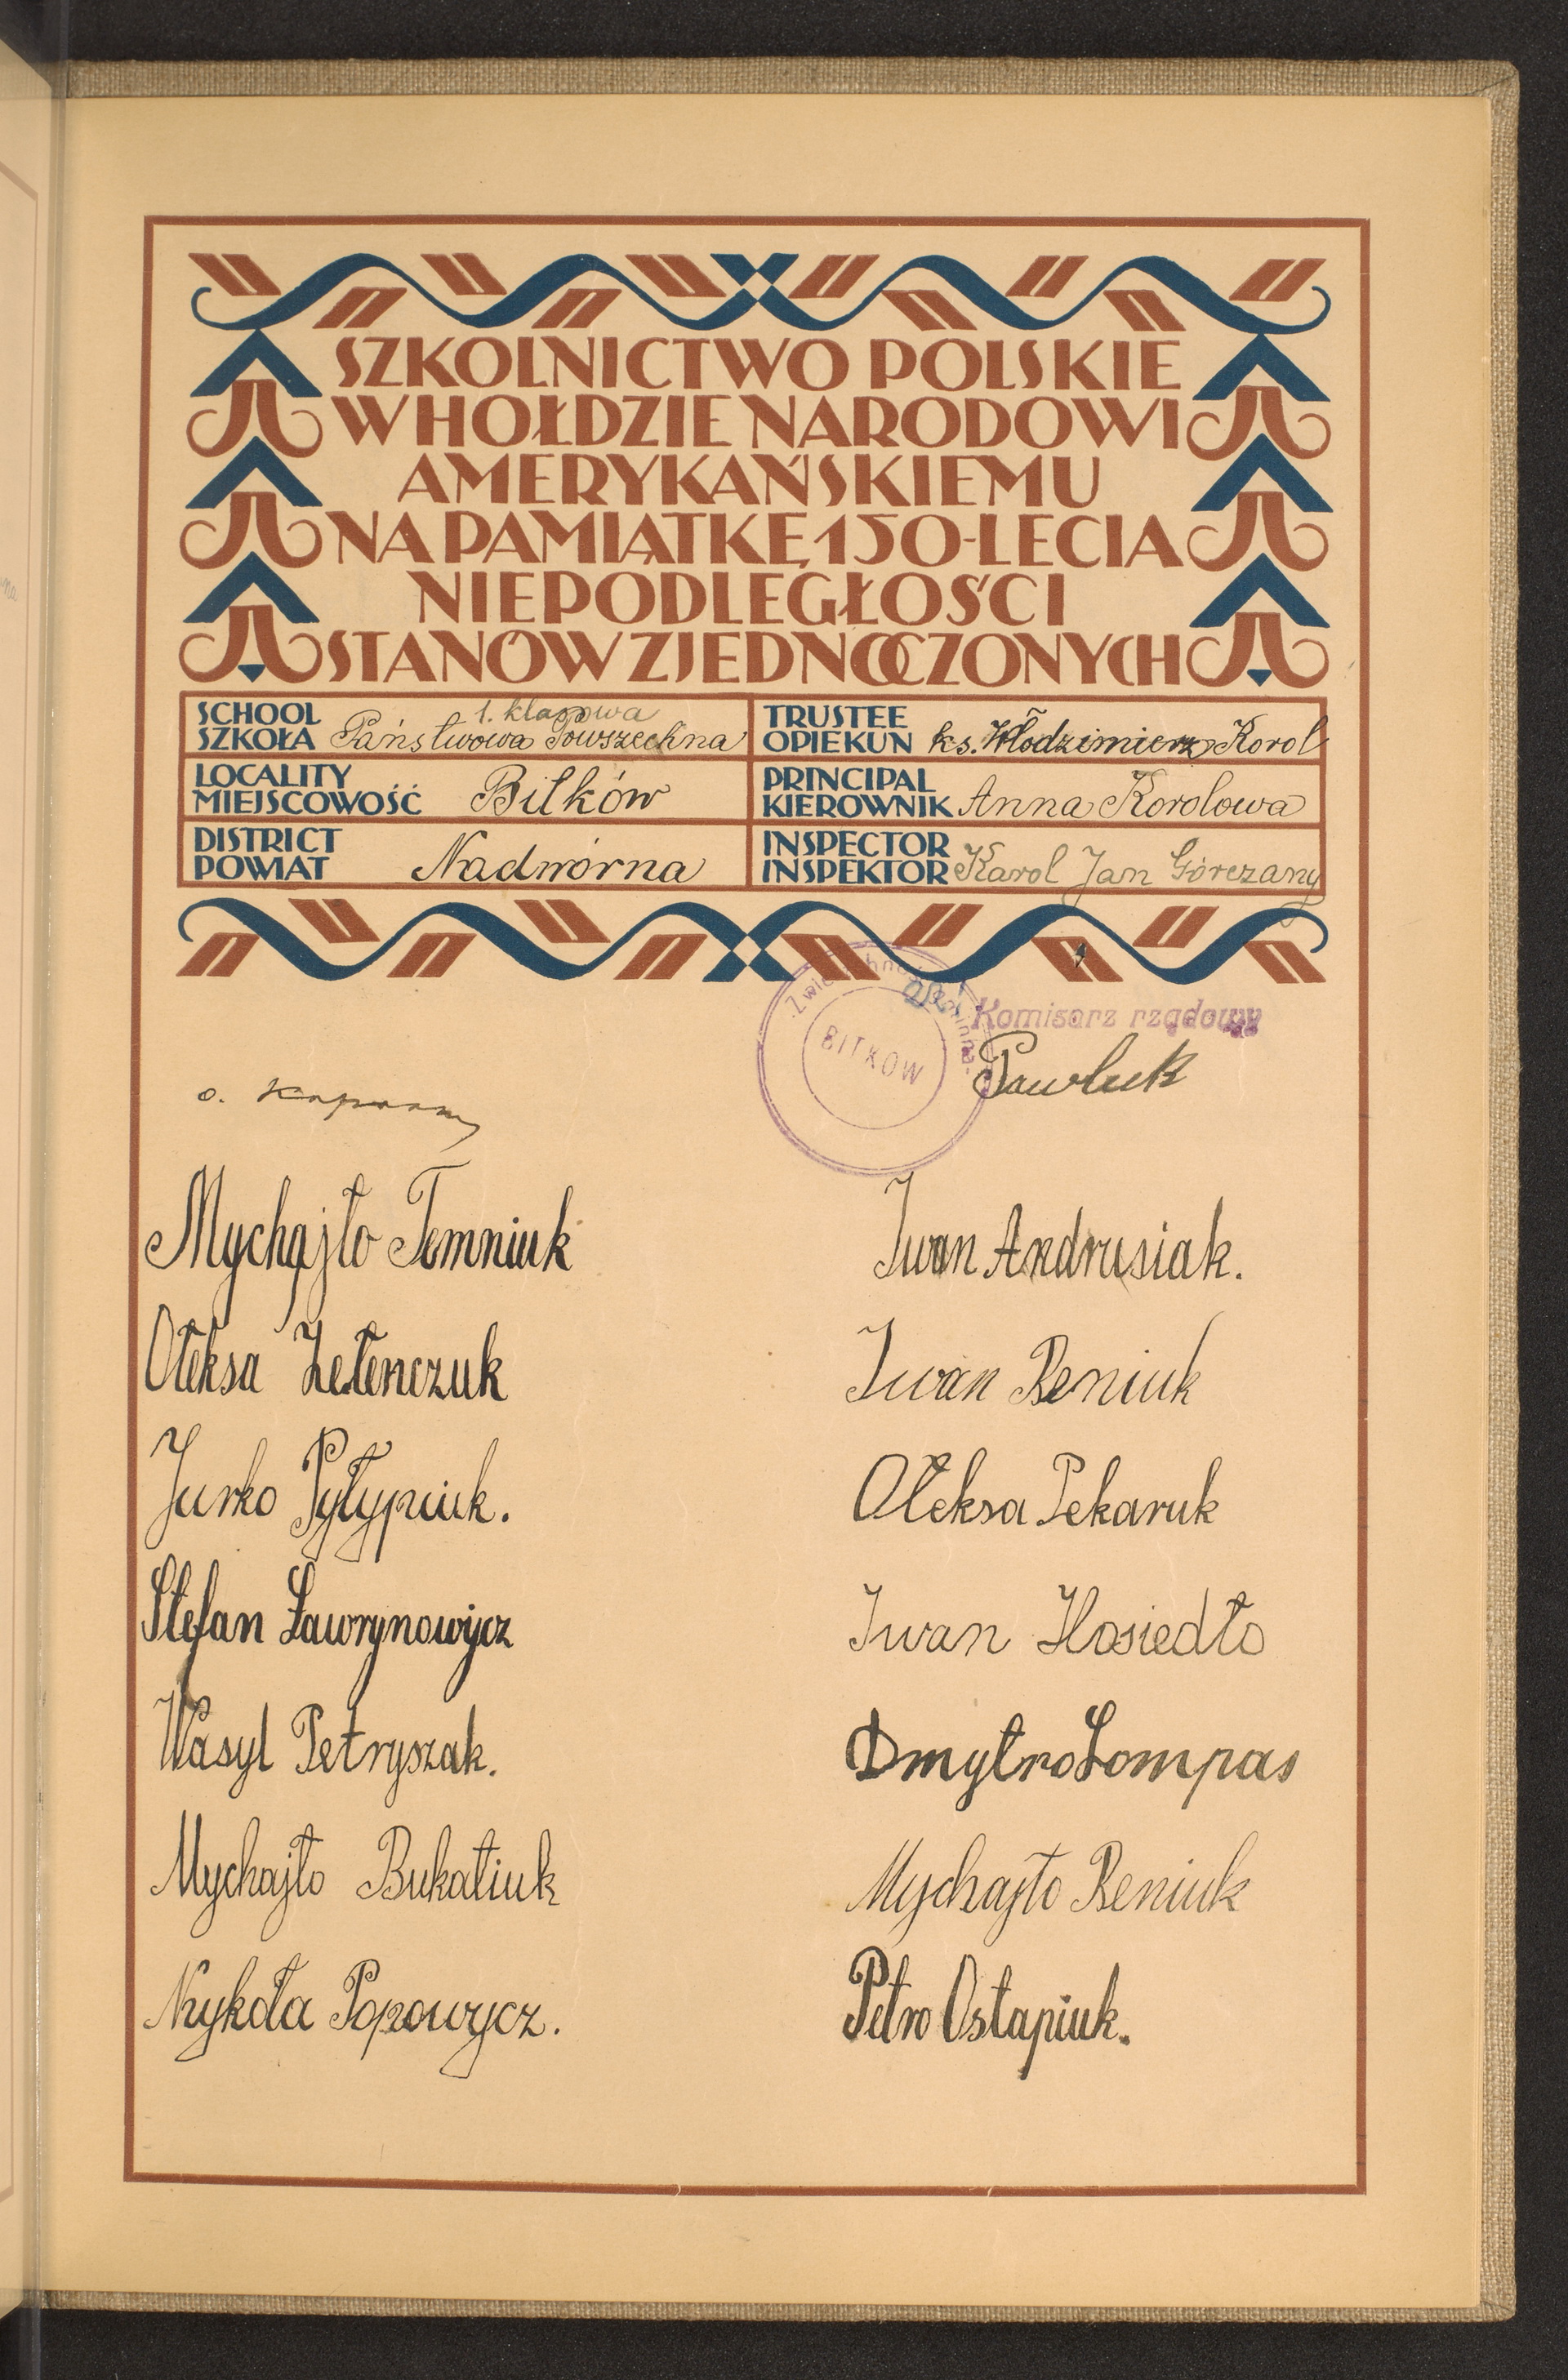 SZKOLNICTWO POLSKIE
W HOŁDZIE NARODOWI
AMERYKAŃSKIEMU
NA PAMIĄTKĘ 150-LECIA
NIEPODLEGŁOŚCI
STANÓW ZJEDNOCZONYCH
SCHOOL
SZKOŁA
1. klasowa
Państwowa Powszechna
TRUSTEE
OPIEKUN ks. Włodzimierz Korol
LOCALITY
MIEJSCOWOŚĆ Bitków
PRINCIPAL
KIEROWNIK Anna Korolowa
DISTRICT
POWIAT Nadwórna
INSPECTOR
INSPEKTOR Karol Jan Górczany
Zwierzchność gminna
BITKOW
Komisarz rządowy
Pawluk
o.
Mychajło Temniuk
Iwan Andrusiak.
Ołeksa Zełenczuk
Iwan Beniuk
Jurko Pyłypiuk.
Ołeksa Pekaruk
Stefan Ławrynowycz
Iwan Hosiedło
Wasyl Petryszak.
Dmytro Lompas
Mychajło Bukatiuk
Mychajło Beniuk
Mykoła Popowycz.
Petro Ostapiuk.